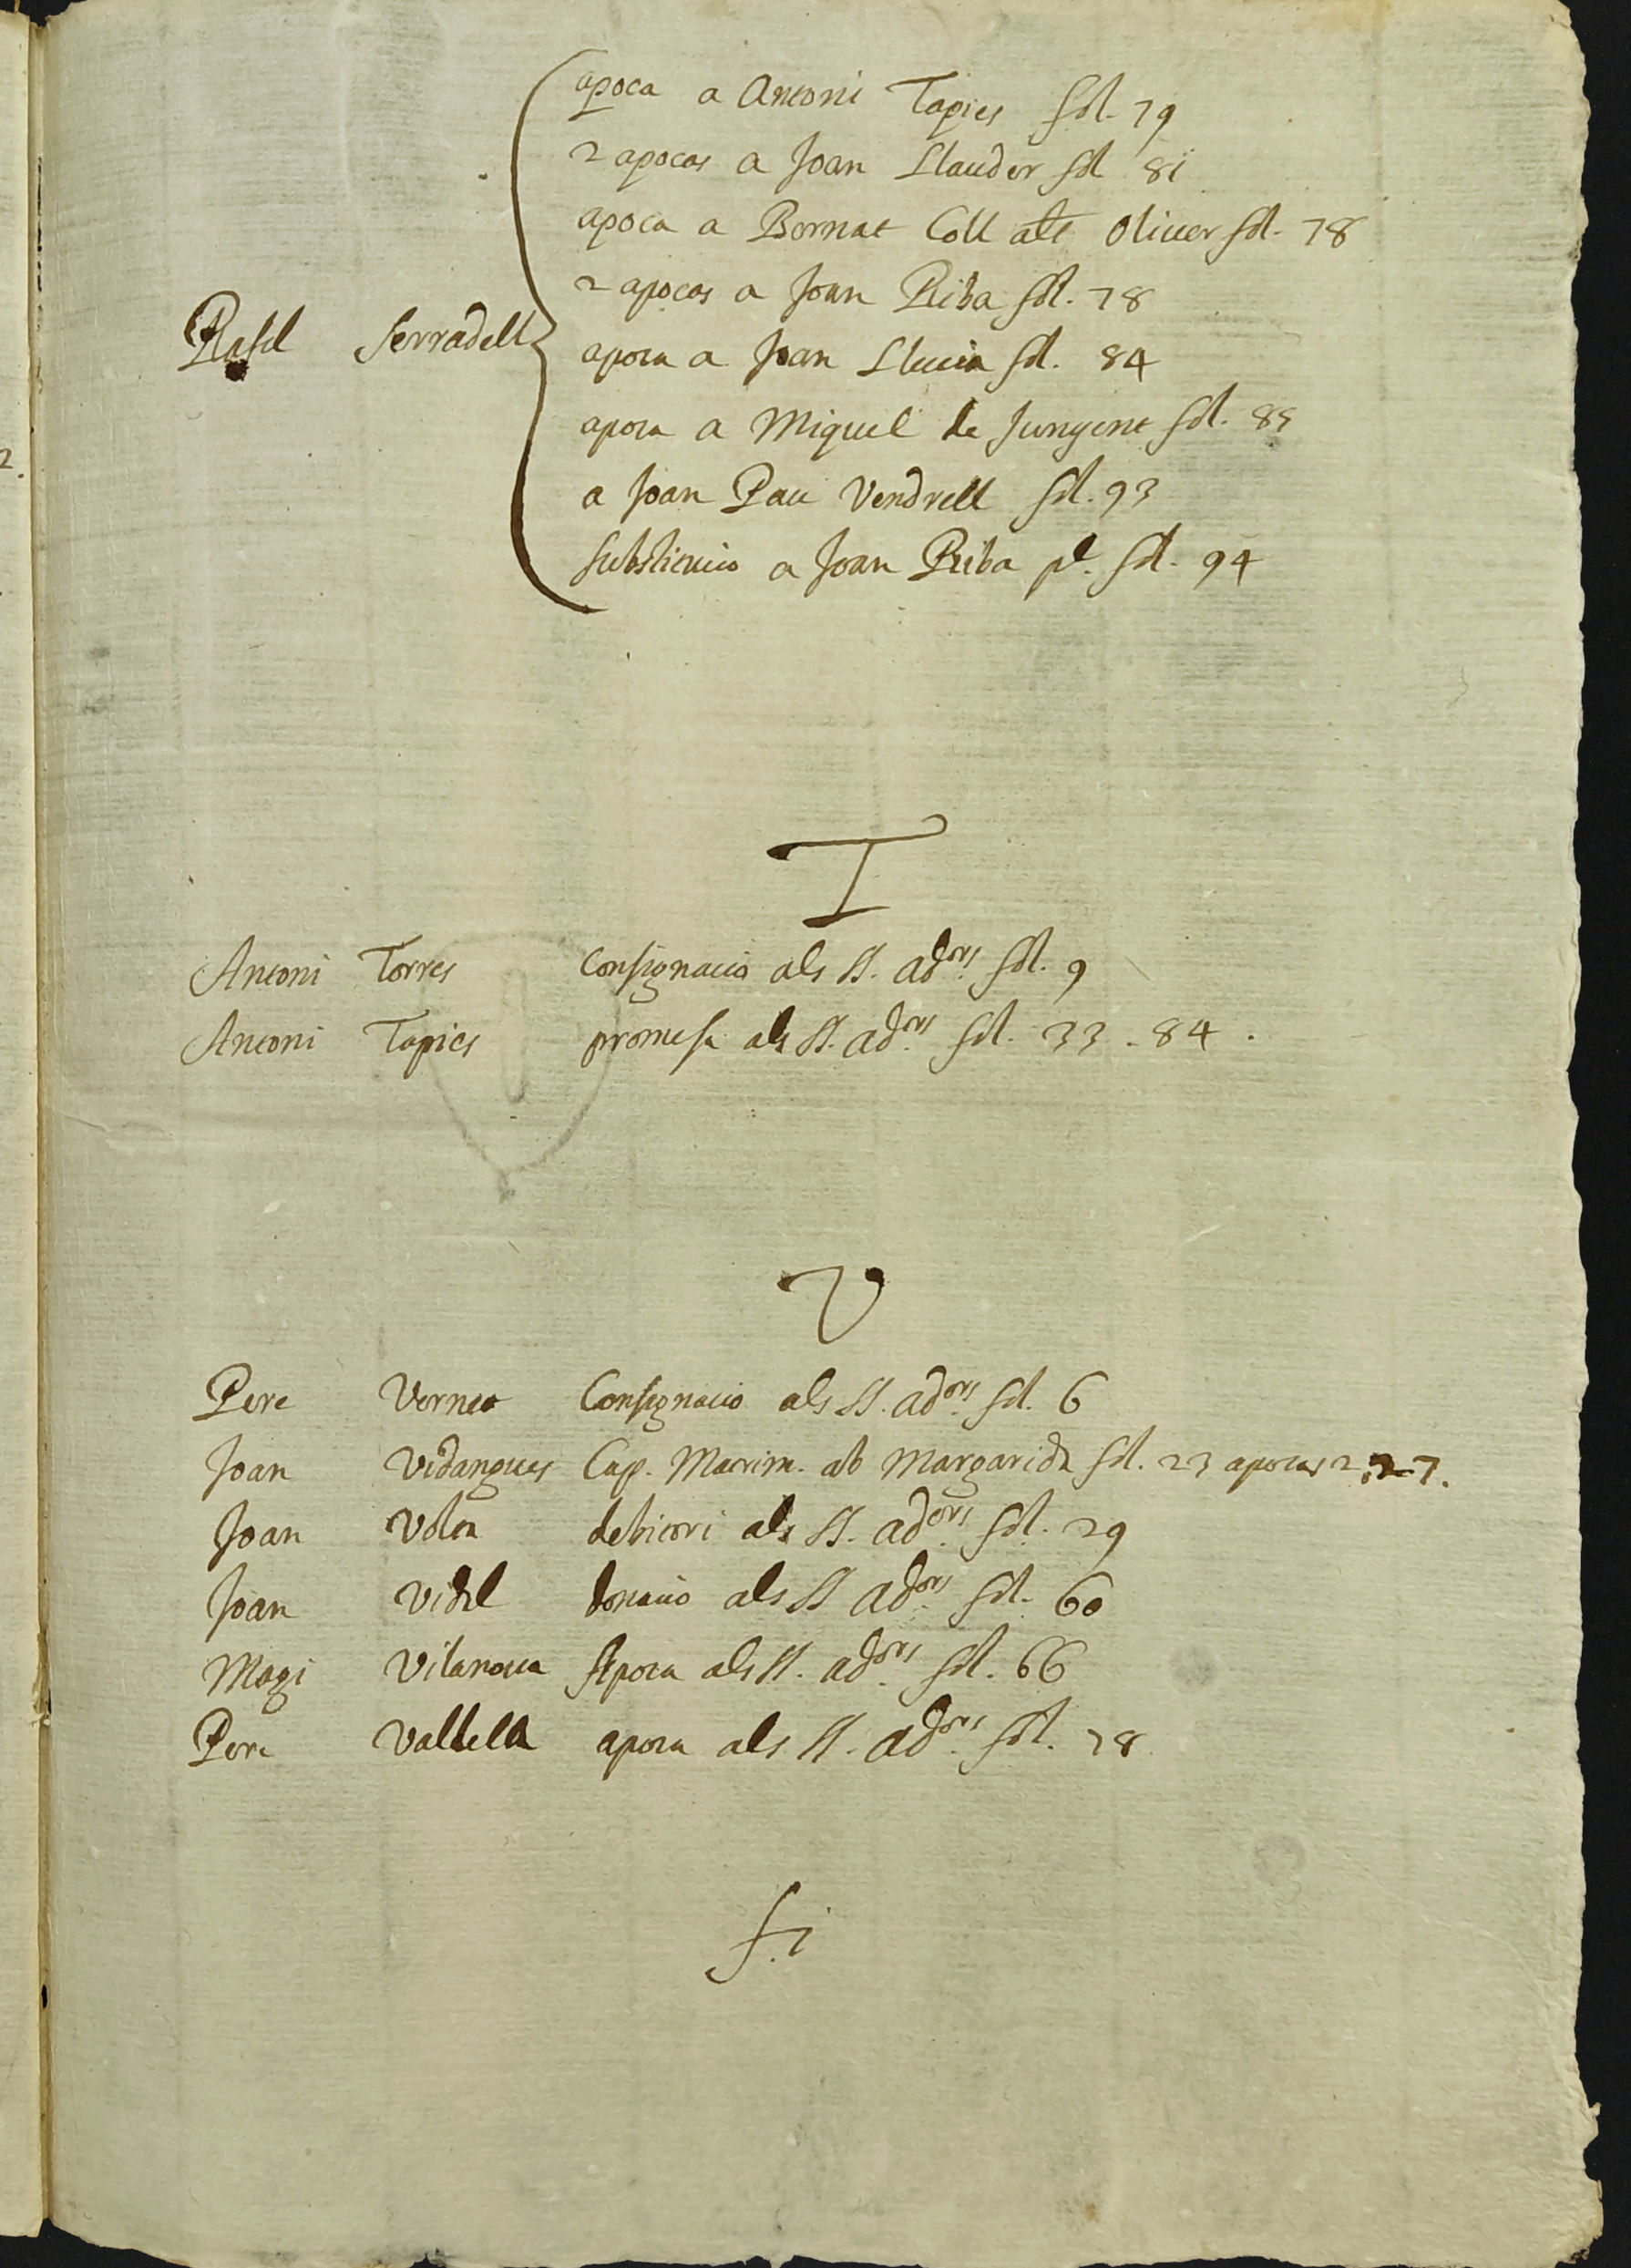 apoca a Antoni Tapies fol. 79
2 apocas a Joan Llauder fol 81
apoca a Bernat Coll als Oliuer fol. 78
2 apocas a Joan Riba fol. 78
Rafel Serradell
apoca a Joan Llucia fol. 84
apoca a Miquel de Junyent fol. 85
a Joan Pau Vendrell fol. 93
substicucio a Joan Riba pl. fol. 94
T
Antoni Torres Consignacio als SS. adors fol. 9
Antoni Tapies promesa als SS. adors fol. 33. 84.
V
Pere Vernet Consignacio als SS. adors fol. 6
Joan Vidangues Cap. Matrim. ab Margarida fol. 23 apocas 2. 27.
Joan Volta debitori als SS. adors fol. 29
Joan Vidal donacio als SS adors fol. 60
Magi Vilanoua Apoca als SS. adors fol. 66
Pere Vallella apoca als SS. adors fol. 78
fi